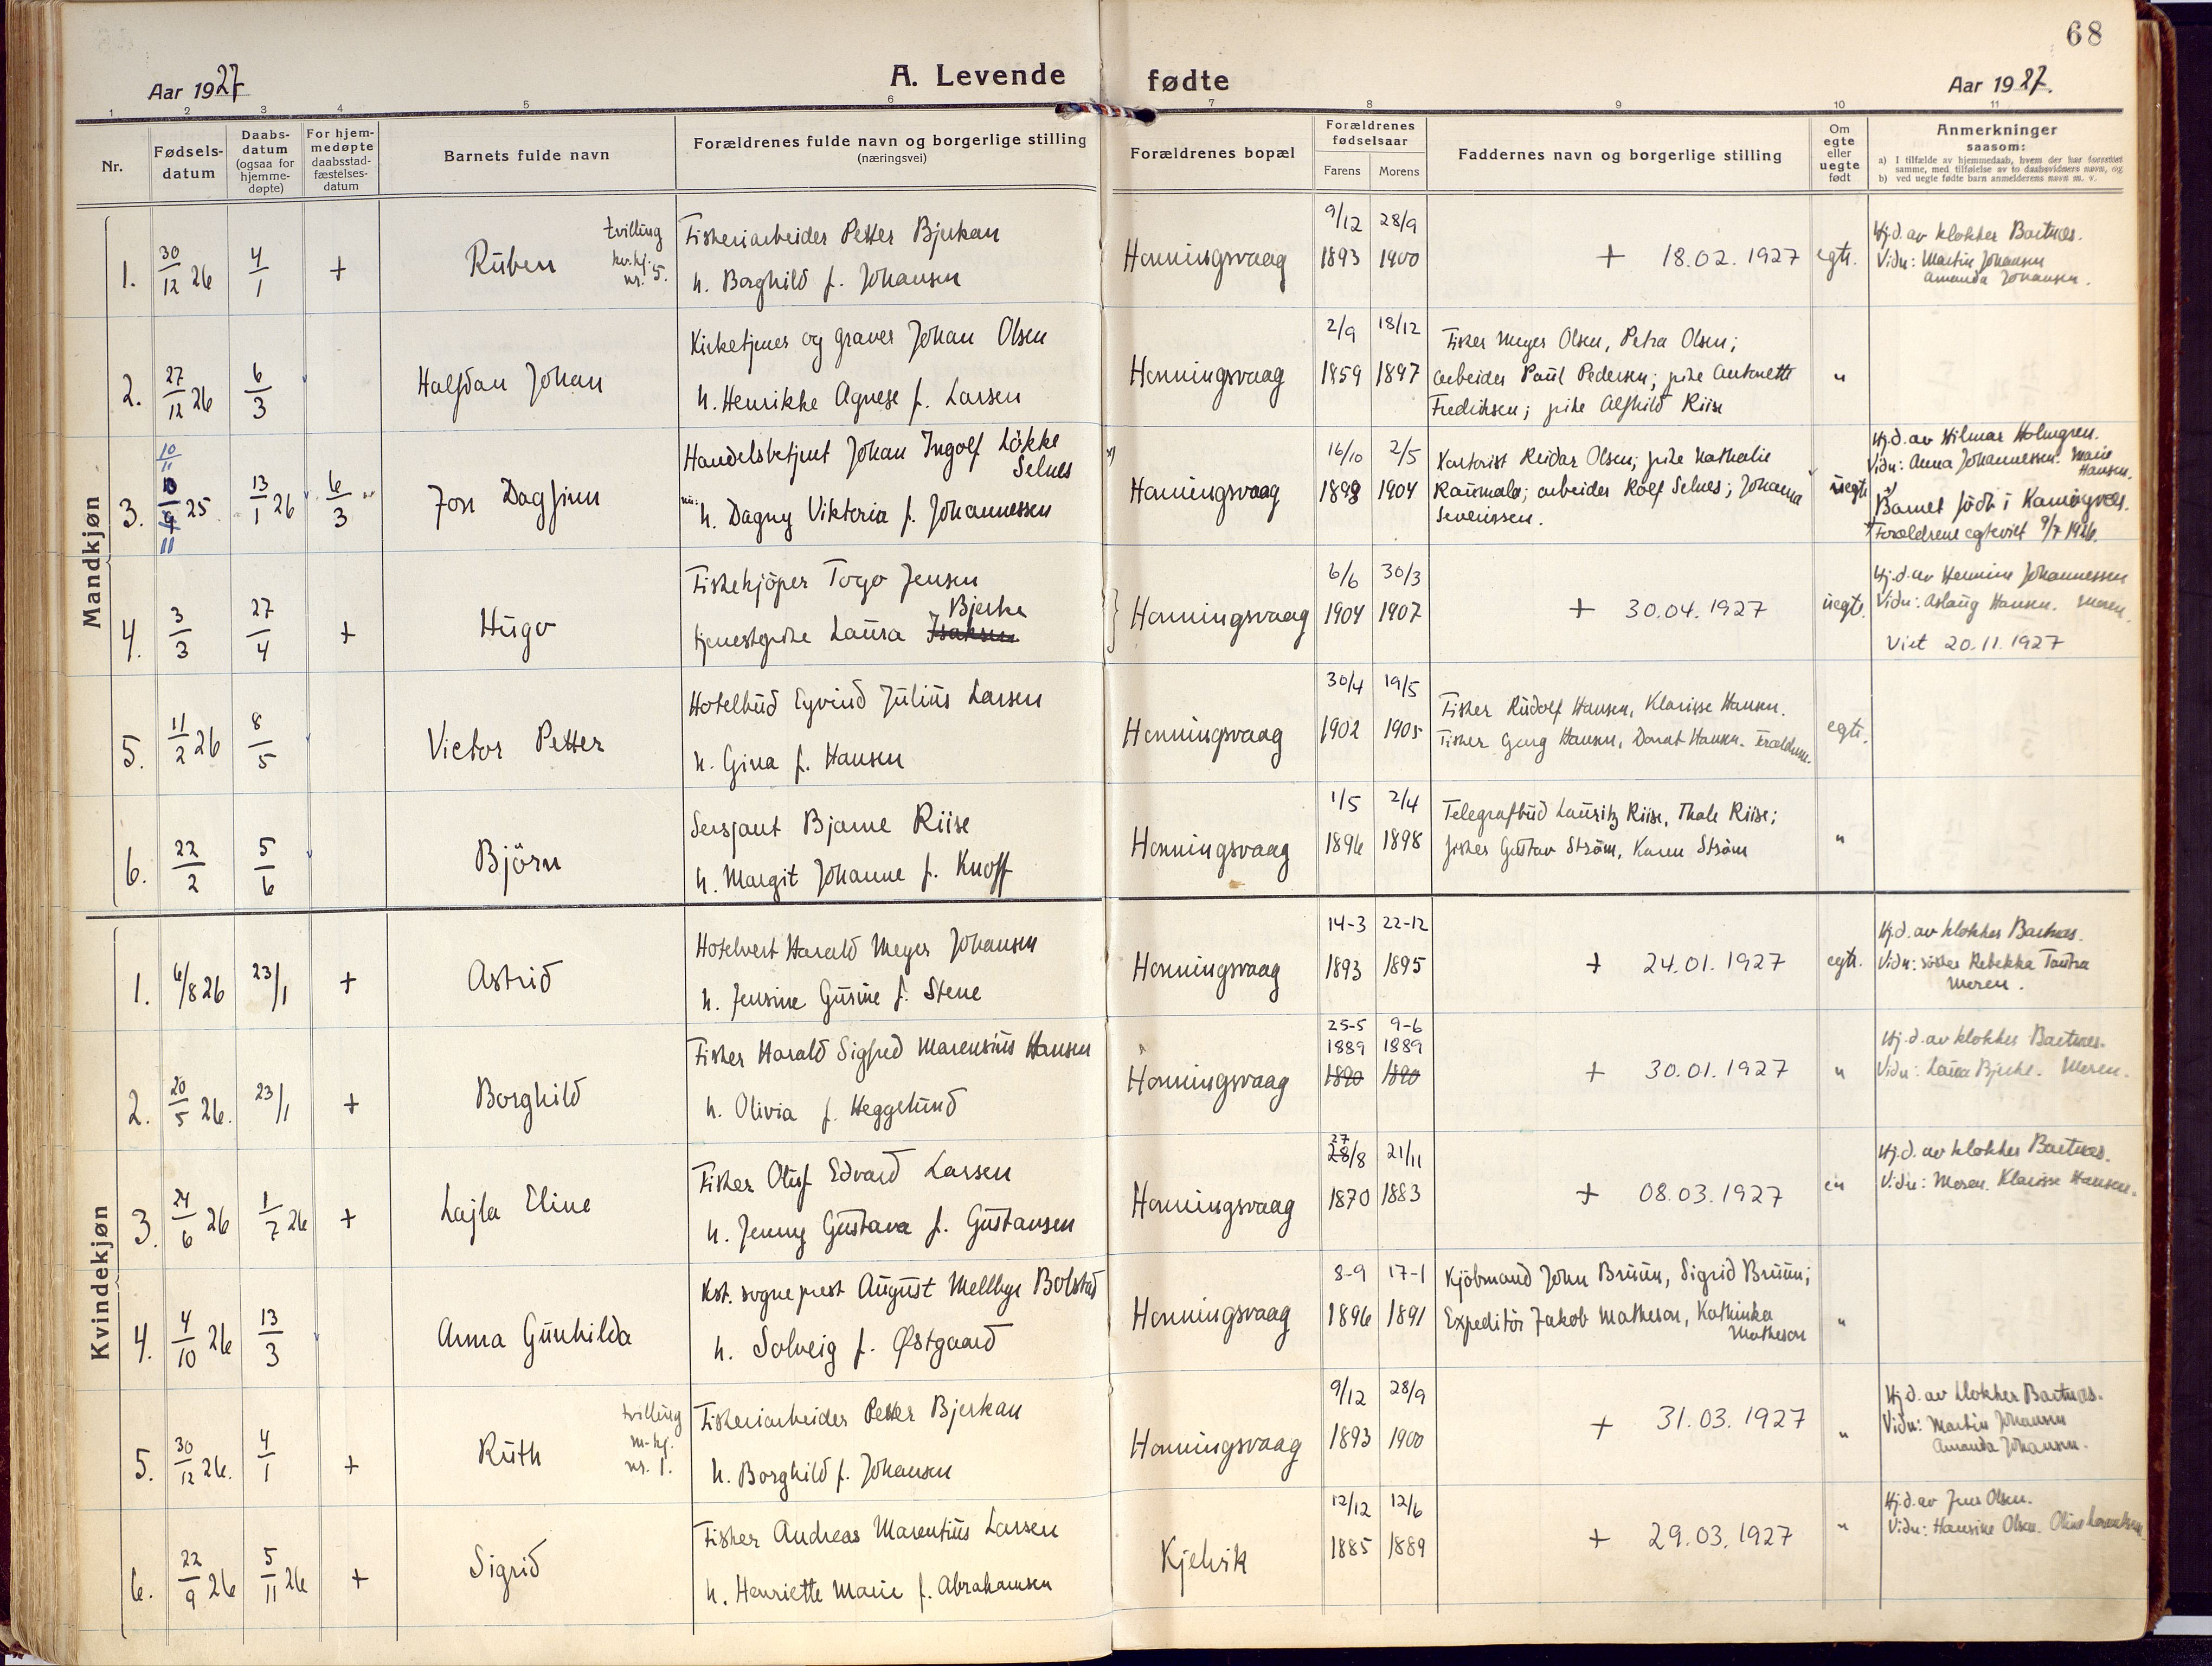 68
Aar 1927
A. Levende fødte
Aar 1927.
1 2 3 4 5 6 7 8 9 10 11
Nr.
Fødsels-
datum
Daabs-
datum
(ogsaa for
hjemme-
døpte)
For hjem-
medøpte
daabsstad-
fæstelses-
datum
Barnets fulde navn
Forældrenes fulde navn og borgerlige stilling
(næringsvei)
Forældrenes bopæl
Forældrenes
fødselsaar
Farens Morens
Faddernes navn og borgerlige stilling
Om
egte
eller
uegte
født
Anmerkninger
saasom:
a) I tilfælde av hjemmedaab, hvem der har forrettet
samme, med tilføielse av to daabsvidners navn, og
b) ved uegte fødte barn anmelderens navn m. v.
Mandkjøn
1. 30/12 26 4/1 +
Ruben
tvilling
kv.kj.
nr. 5.
Fiskeriarbeider Petter Bjerkan
h. Borghild f. Johansen
Honningsvaag
9/12 28/9
1893 1900
+ 18.02.1927
egte.
Hj.d. av klokker Baitnes.
Vidn: Martin Johansen
Amanda Johansen.
2. 27/12 26 6/3
Halfdan Johan
Kirketjener og graver Johan Olsen
h. Henrikke Agnese f. Larsen
Honningsvaag
2/9 18/12
1859 1897
Fisker Meyer Olsen, Petra Olsen;
arbeider Paul Pedersen; pike Antonette
Fredriksen; pike Alfhild Riise
"
3. 10/11 25 13/1 26 6/3
Jon Dagfinn
Handelsbetjent Johan Ingolf Løkke
Selnes
h. Dagny Viktoria f. Johannessen
Honningsvaag
16/10 2/5
1898 1904
Kontorist Reidar Olsen; pike Nathalie
Raumala; arbeider Rolf Selnes; Johanna
Severinsen.
uegte
Hj.d. av Hilmar Holmgren.
Vidn: Anna Johannessen. Marie
Hansen.
Barnet født i Kamøyvær.
Forældrene egteviet 9/7 1926.
4. 3/3 27/4 +
Hugo
Fiskekjøper Togo Jensen
Bjerke
tjenestepike Laura Isaksen
Honningsvaag
6/6 30/3
1904 1907
+ 30.04.1927
uegte.
Hj.d. av Hermine Johannessen
Vidn: Aslaug Hansen. Moren.
Viet 20.11.1927
5. 11/2 26 8/5
Victor Petter
Hotelbud Eyvind Julius Larsen
h. Gina f. Hansen
Honningsvaag
30/4 19/5
1902 1905
Fisker Rudolf Hansen, Klarisse Hansen.
Fisker Georg Hansen, Dorat Hansen. Forældrene.
egte.
6. 22/2 5/6
Bjørn
Sersjant Bjarne Riise
h. Margit Johanne f. Knoff
Honningsvaag
1/5 2/4
1896 1898
Telegrafbud Lauritz Riise, Thale Riise;
fisker Gustav Strøm, Karen Strøm
"
Kvindekjøn
1. 6/8 26 23/1 +
Astrid
Hotelvert Harald Meyer Johansen
h. Jensine Gusine f. Stene
Honningsvaag
14-3 22-12
1893 1895
+ 24.01.1927
egte.
Hj.d. av klokker Baitnes.
Vidn: søster Rebekka Tautra
Moren.
2. 20/5 26. 23/1 +
Borghild
Fisker Harald Sigfred Marensius Hansen
h. Olivia f. Heggelund
Honningsvaag
25-5 9-6
1889 1889
1890 1890
+ 30.01.1927
"
Hj.d. av klokker Baitnes.
Vidn: Laura Bjerke. Moren.
3. 24/6 26 1/7 26 +
Lajla Eline
Fisker Oluf Edvard Larsen
h. Jenny Gustava f. Gustavsen
Honningsvaag
27
28/8 21/11
1870 1883
+ 08.03.1927
Hj.d. av klokker Baitnes.
Vidn: Moren. Klarisse Hansen.
4. 4/10 26 13/3
Anna Gunhilda
Kst. sogneprest August Mellbye Bolstad
h. Solveig f. Østgaard
Honningsvaag
8-9 17-1
1896 1891
Kjøbmand John Bruun, Sigrid Bruun;
Expeditør Jakob Matheson, Kathinka
Matheson
"
5. 30/12 26. 4/1 +
Ruth
tvilling
m-kj.
nr. 1.
Fiskeriarbeider Petter Bjerkan
h. Borghild f. Johansen
Honningsvaag
9/12 28/9
1893 1900
+ 31.03.1927
"
Hj.d. av klokker Baitnes.
Vidn: Martin Johansen
Amanda Johansen.
6. 22/9 26 5/11 26 +
Sigrid
Fisker Andreas Marentius Larsen
h. Henriette Marie f. Abrahamsen
Kjelvik
12/12 12/6
1885 1889
+ 29.03.1927
"
Hj.d. av Jens Olsen.
Vidn: Hansine Olsen. Oline Lorentsen